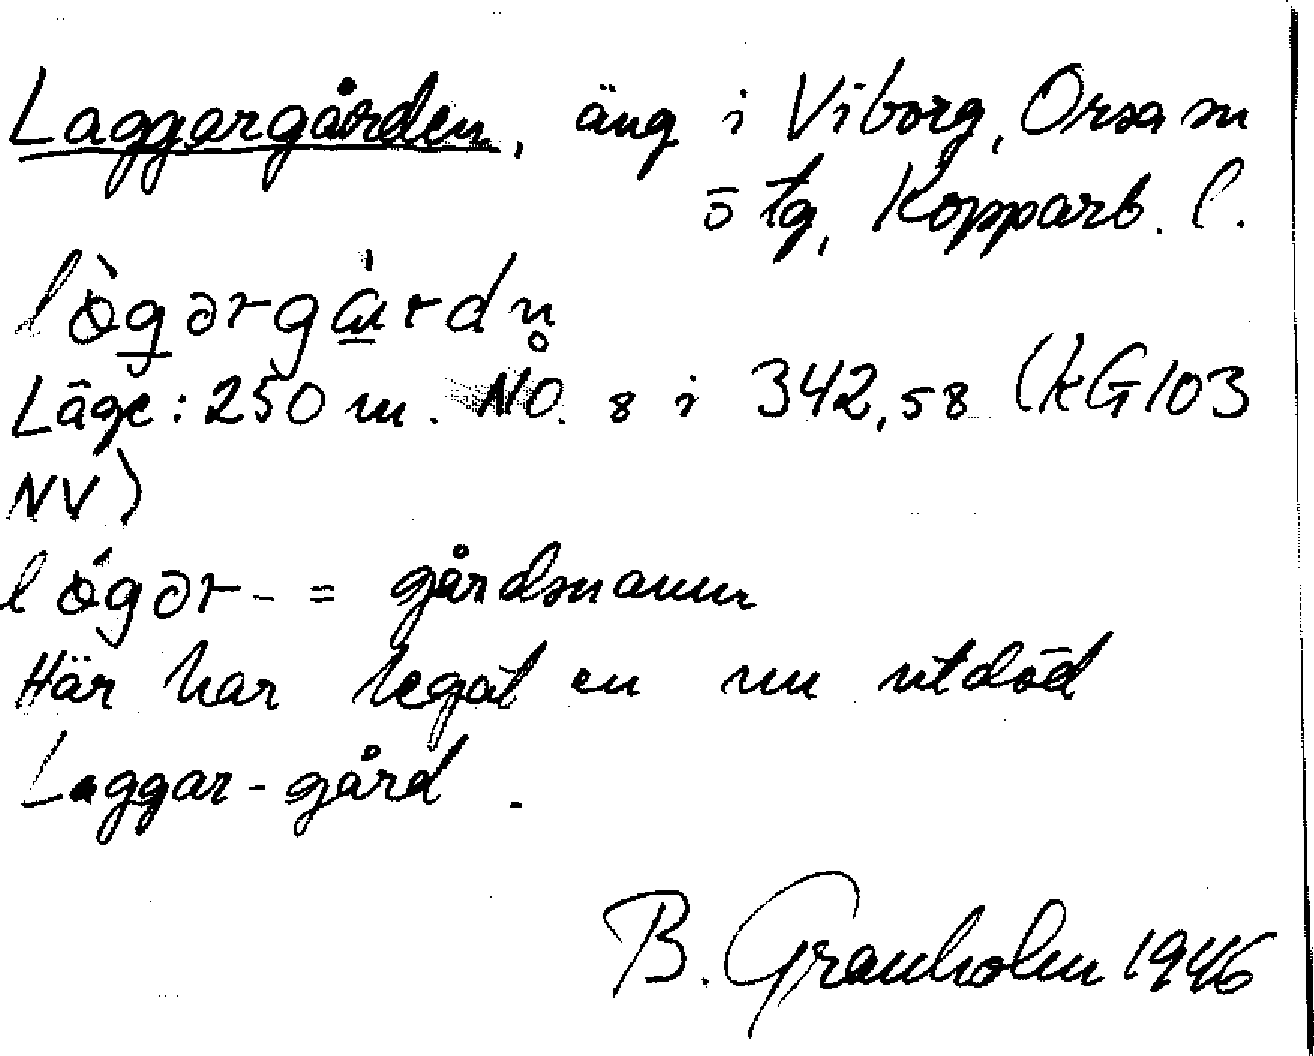 Laggargården, äng i Viborg, Orsa sn
ö tg, Kopparb. l.
Läge: 250 m. NO. 8 i 342,58 (kG103
NV)
= gårdsmann
Här har legat en nu utdöd
Laggar-gård.
B. Granholm 1946